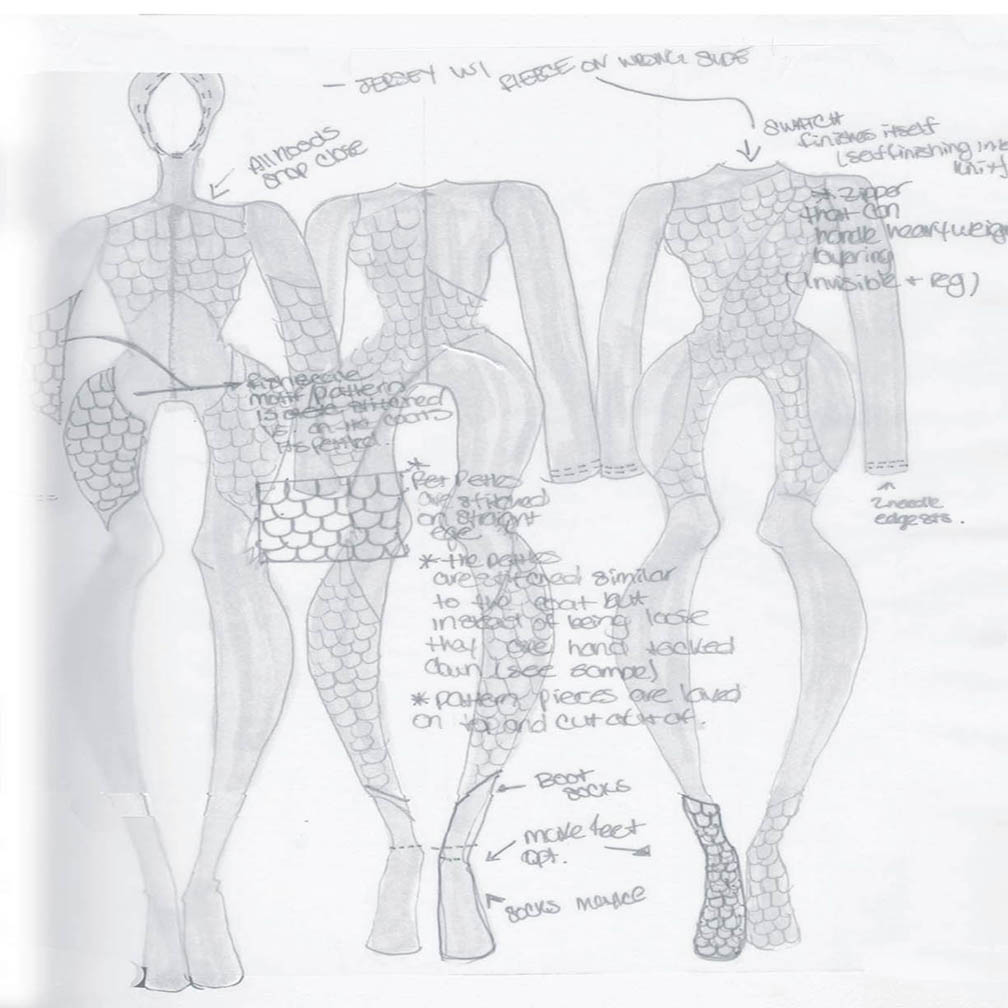 - JERSEY W/ FLEECE ON WRONG SIDE
All hoods
stop close
SWATCH
finishes itself
(self finishing
knit)
* zipper
that can
handle heavy weig
layering
(Invisible + reg)
motif/pattern
is
on the
*
are stitched
on straight
2 needle
edge sts.
* the
are stitched similar
to the coat but
instead of being loose
they are hand tacked
down (see sample)
* pattern pieces are
on top and cut out of.
Boot
socks
make feet
opt.
socks